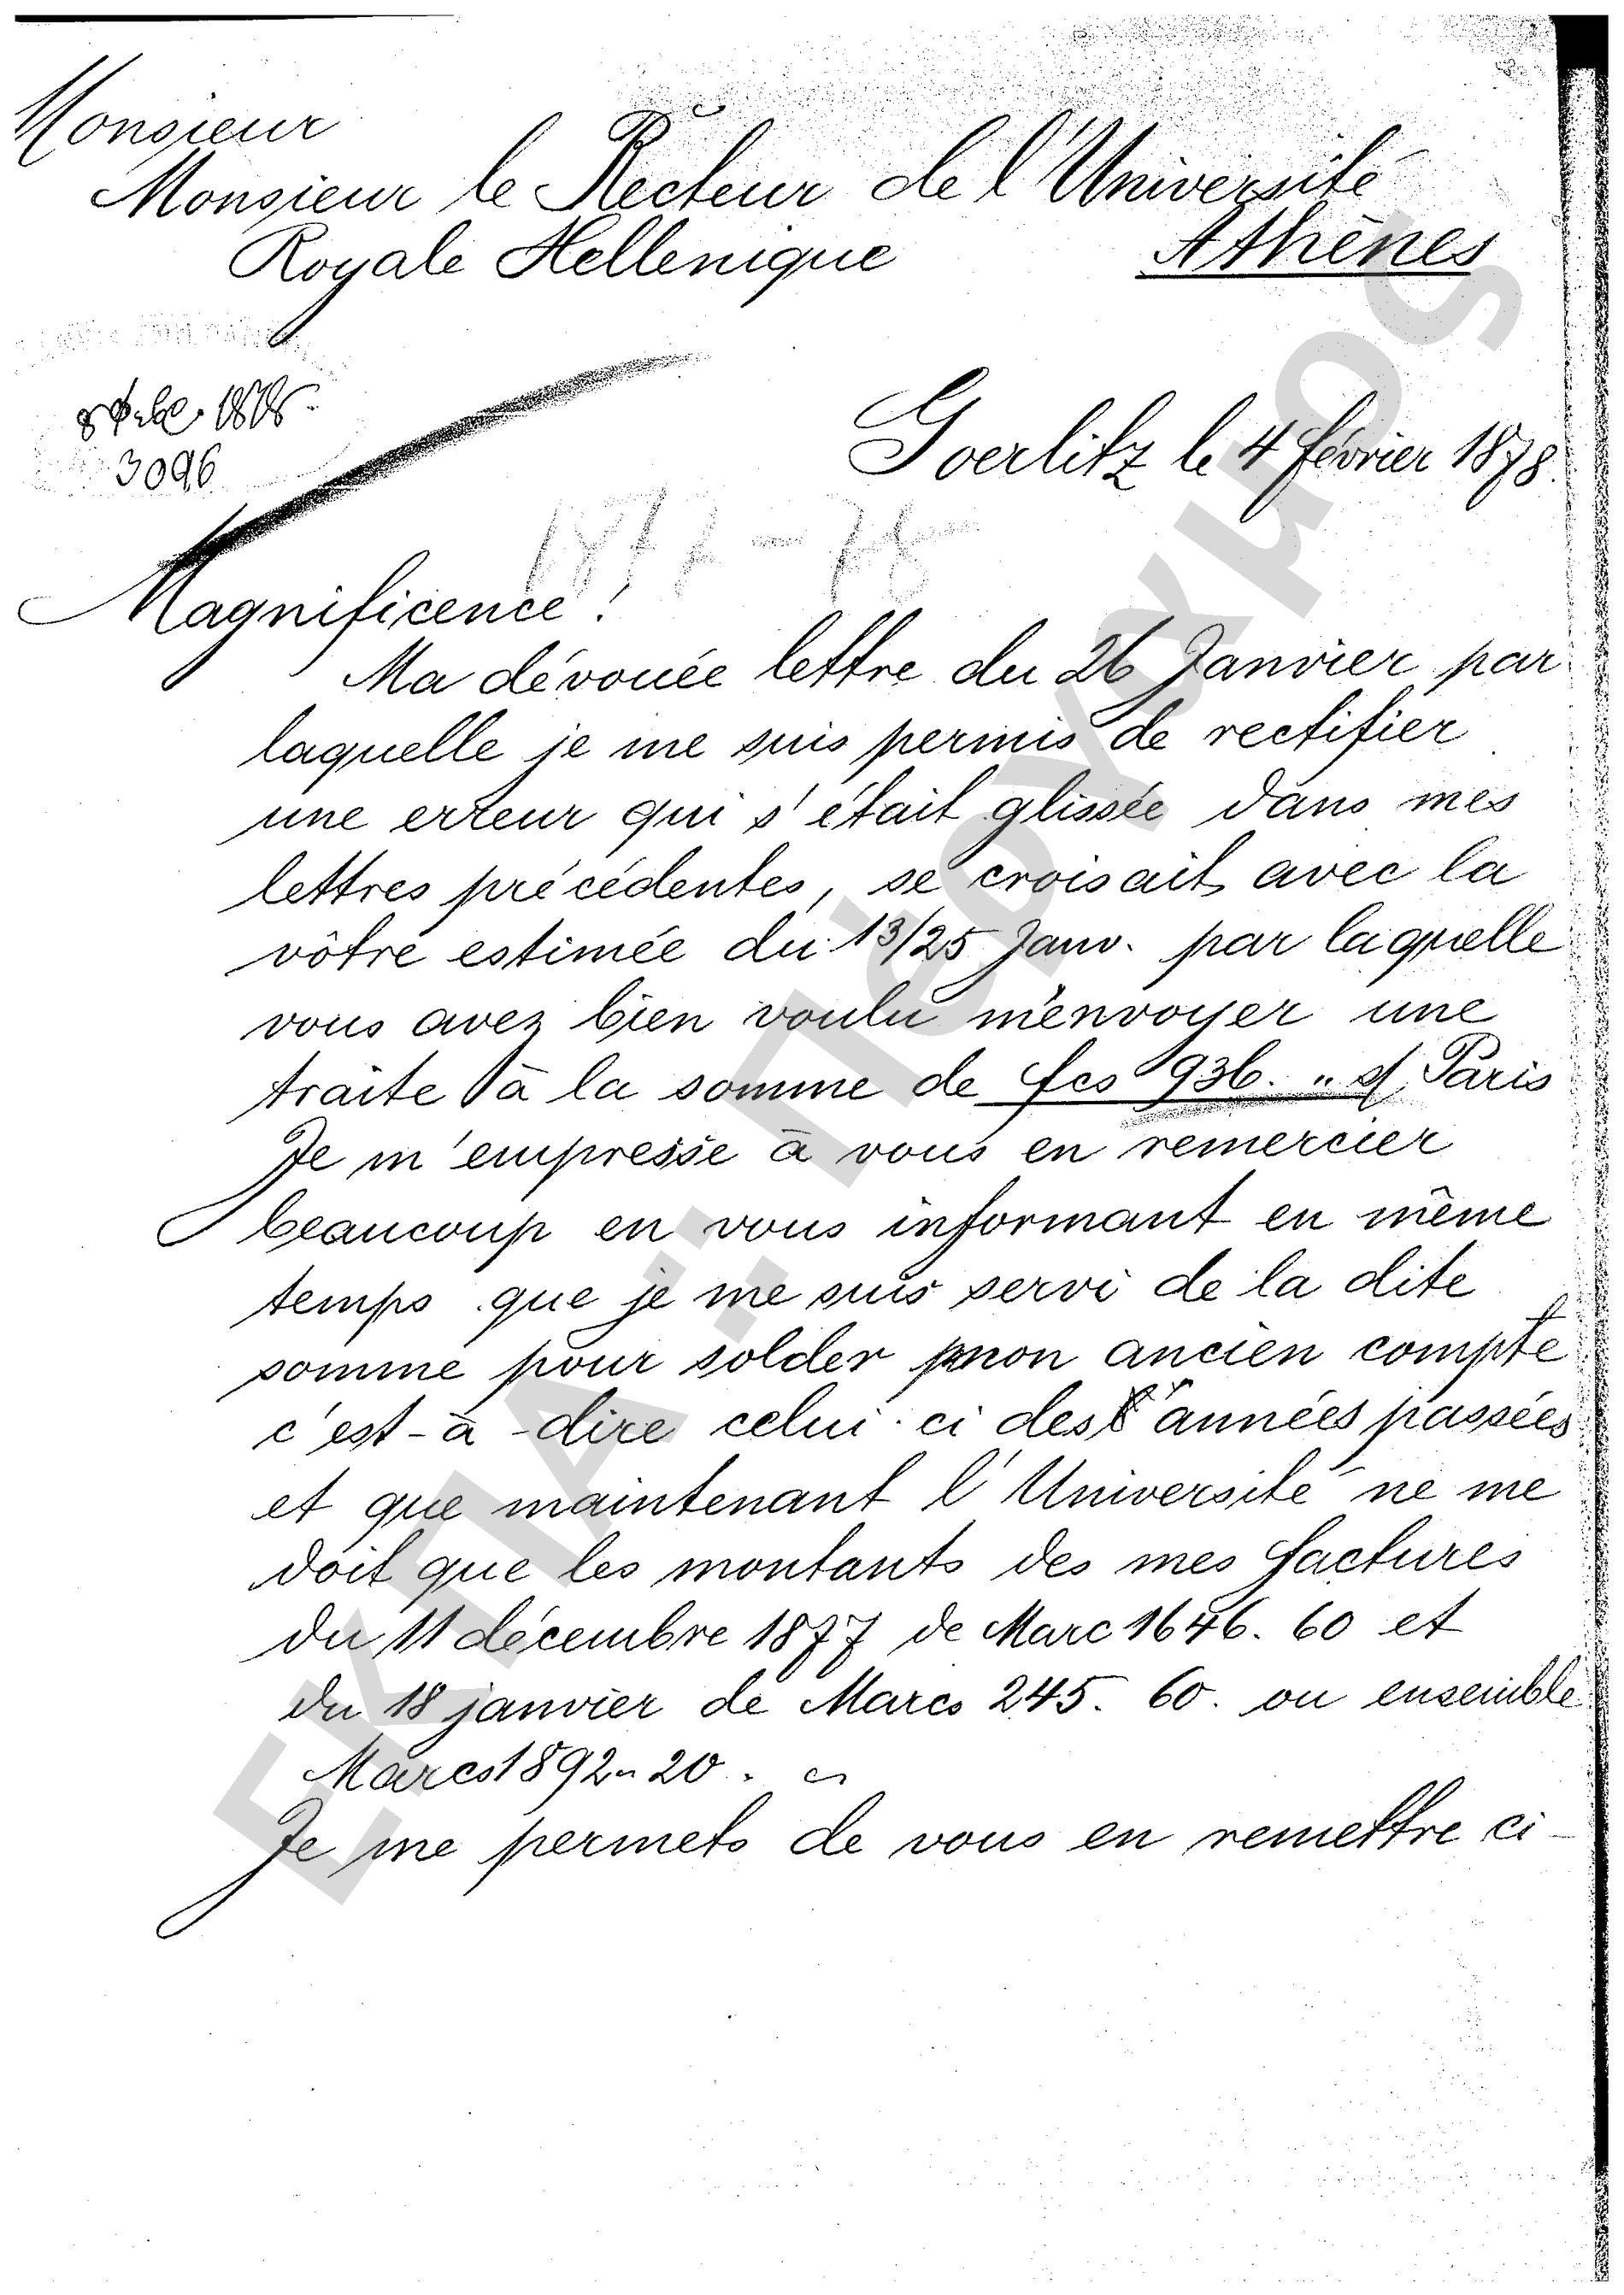 Monsieur
Monsieur le Recteur de l'Université
Royale Hellenique Athènes
3096
Goerlitz le 4 février 1878.
1877-78
Magnificence!
Ma dévouée lettre du 26 Janvier par
laquelle je me suis permis de rectifier
une erreur qui s'était glissée dans mes
lettres précédentes, se croisait avec la
vôtre estimée du 13/25 Janv. par laquelle
vous avez bien voulu m'envoyer une
traite à la somme de fcs 936. " s/ Paris
Je m'empresse à vous en remercier
beaucoup en vous informant en même
temps que je me suis servi de la dite
somme pour solder mon ancien compte
c'est-à-dire celui-ci des années passées
et que maintenant l'Université ne me
doit que les montants des mes factures
du 11 décembre 1877 de Marc 1646. 60 et
du 18 janvier de Marcs 245. 60. ou ensemble
Marcs 1892 " 20.
Je me permets de vous en remettre ci-
ΕΚΠΑ: Πέργαμος